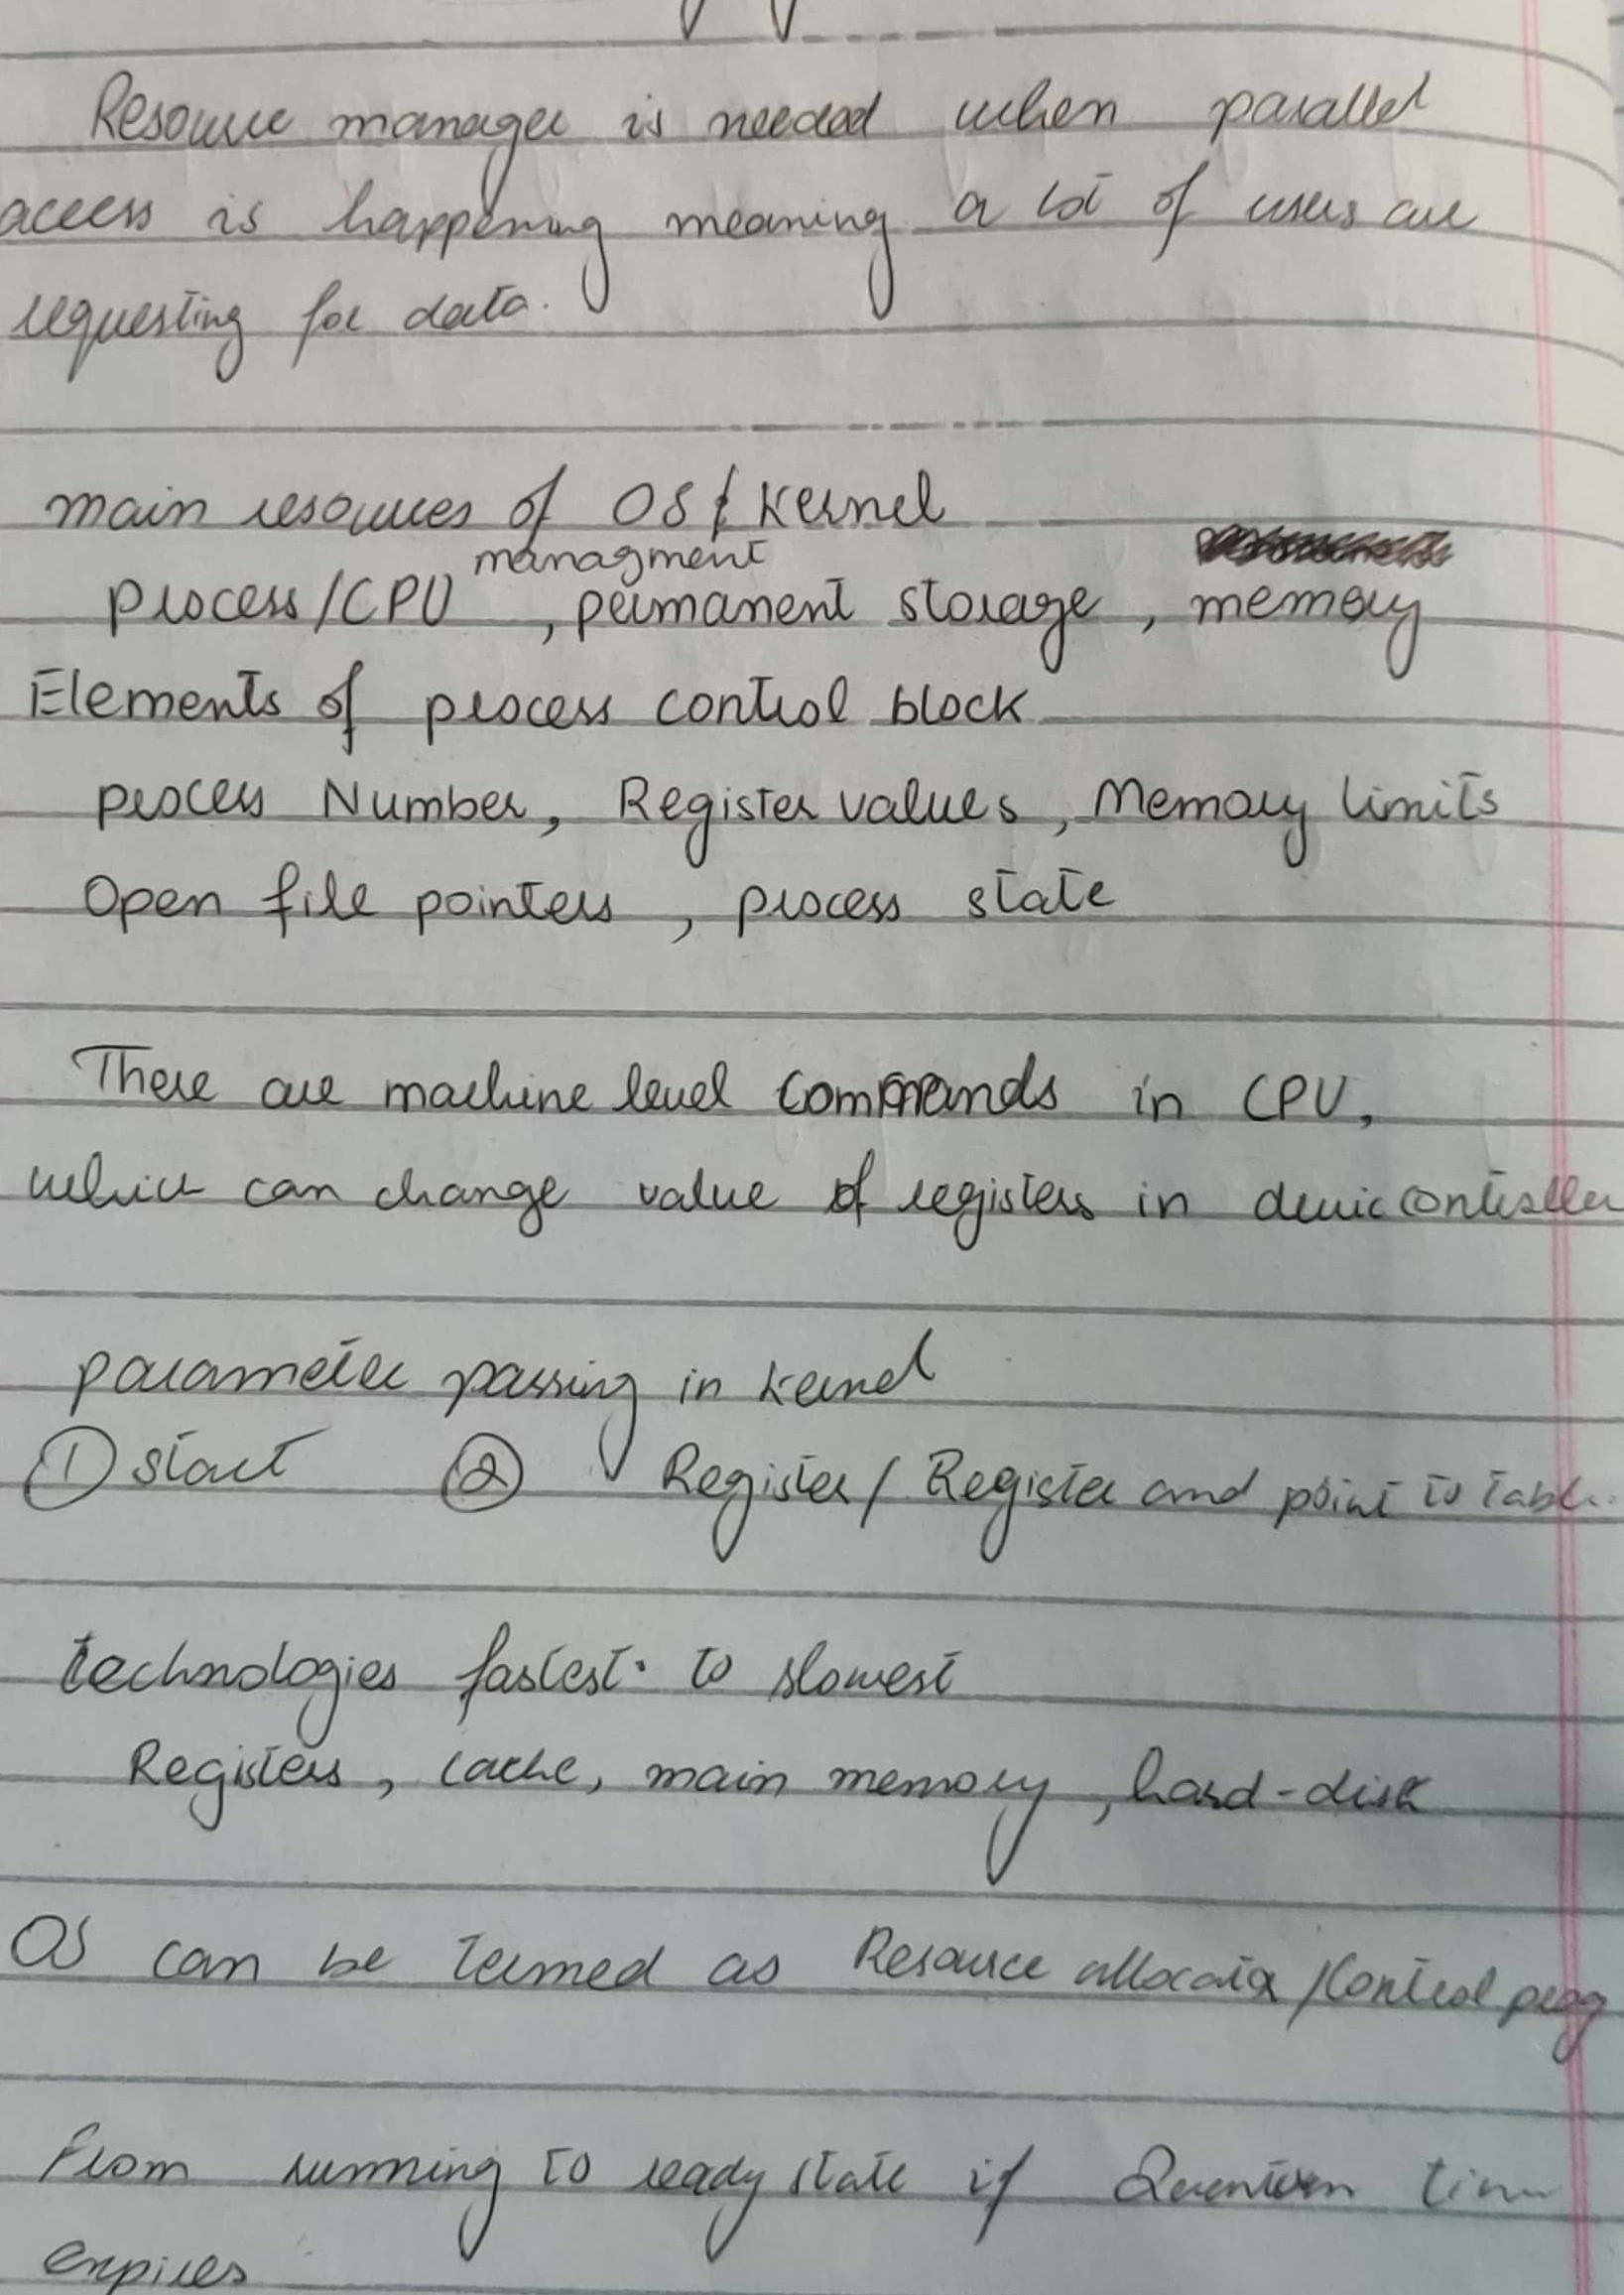 Resource manager is needed when parallel
access is happening meaning a lot of users are
requesting for data.
main resources of OS & Kernel
managment
process/CPU , permanent storage , memory
Elements of process control block
process Number, Register values, Memory limits
Open file pointers , process state
There are machine level commands in CPU,
which can change value of registers in devic controller
parameter passing in kernel
① start ② Register / Register and point to table
technologies fastest to slowest
Registers, cache, main memory, hard-disk
OS can be termed as Resource allocator / Control
From running to ready state if time
expires